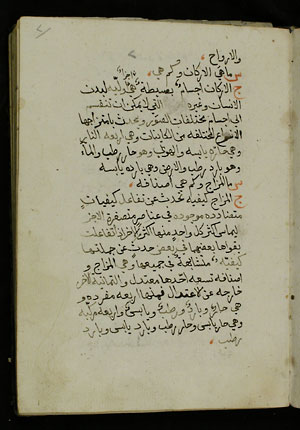 والارواح
س ما هي الاركان وكم هي
ج الاركان اجسام بسيطة هي اجزا اولية لبدن
الانسان وغيره التي لا يمكن ان تنقسم
الى اجسام مختلفات الصور ويحدث بامتزاجها
الانواع المختلفه من الكاينات وهي اربعه النار
وهي حاره يابسه والهوى وهو حار رطب والماء
وهو بارد رطب والارض وهي بارده يابسه
س ما المزاج وكم هي اصنافه
ج المزاج كيفيه تحدث عن تفاعل كيفيات
متضادده موجوده في عناصر متصغرة الاجزا
ليماس اكثر كل واحد منها اكثر الاخر اذا تفاعلت
بقواها بعضها في بعض حدث عن جملتها
كيفيه متشابهة في جميعها وهي المزاج و
اصنافه تسعه احدها معتدل والثمانية الاخر
خارجه عن الاعتدال فمنها اربعه مفرده و
هي حار وبارد ورطب ويابس واربعه مركبه
وهي حار يابس وحار رطب وبارد يابس وبارد
رطب